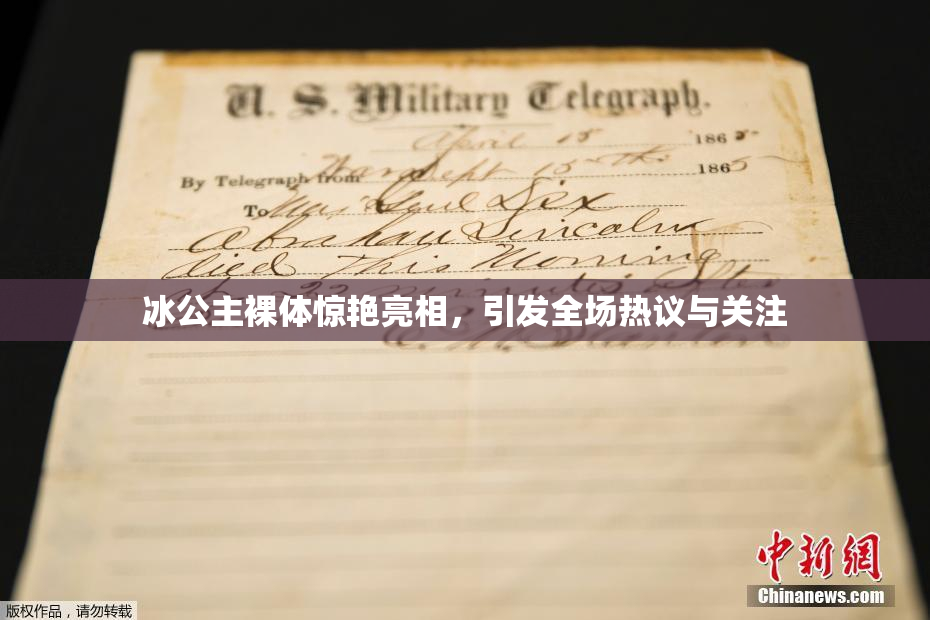 U. S. Military Telegraph.
April 15 1865
By Telegraph from War Dept 15th 1865
To Maj Genl Dix
Abraham Lincoln
died This Morning
at 22 minutes after
冰公主裸体惊艳亮相，引发全场热议与关注
E. M. Stanton
中新网
Chinanews.com
版权作品，请勿转载